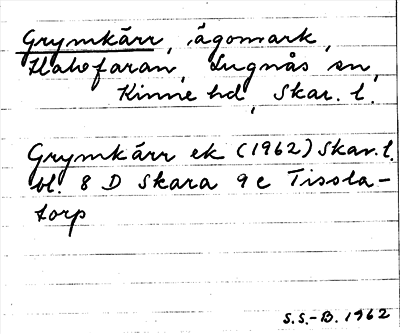 Grymkärr, ägomark,
Halvfaran, Lugnås sn,
Kinne hd, Skar. l.
Grymkärr ek (1962) Skar. l.
bl. 8 D Skara 9 c Tissla-
torp
S.S.-B. 1962